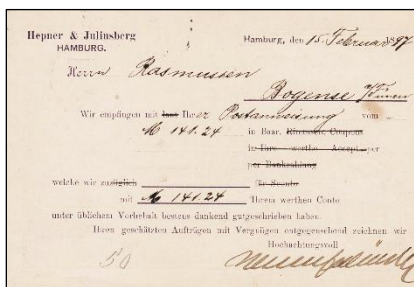 Hepner & Juliusberg
HAMBURG.
Hamburg, den 15 Februar 1897
Herrn Rasmussen
Bogense
Wir empfingen mit laut Ihrer Postanweisung vom
M 141.24 in Baar. Rimessen Coupons
in Ihre werthe Accept per
per Bankzahlung
welche wir zuzüglich
mit M 141.24 Ihrem werthen Conto
unter üblichem Vorbehalt bestens dankend gutgeschrieben haben.
Ihren geschätzten Aufträgen mit Vergnügen entgegensehend zeichnen wir
Hochachtungsvoll
50